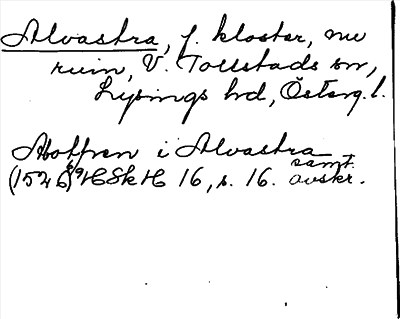 Alvastra, f. kloster, nu
ruin, V. Tollstads sn,
Lysings hd, Österg. l.
Abothen i Alvastra
(1526) HSkH 16, s. 16. samt.
avskr.